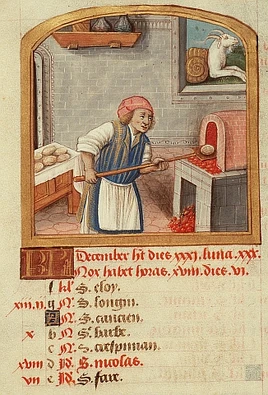 KL December ht dies xxxj. luna. xxx.
Nox habet horas. xviii. dies. vi.
f kl' S. eloy.
xiii. n. g N. S. longin.
A N. S. cancien.
x b N. Se barbe.
c N. S. crespinian.
xviii d N. S. nicolas.
vii e S. fare.